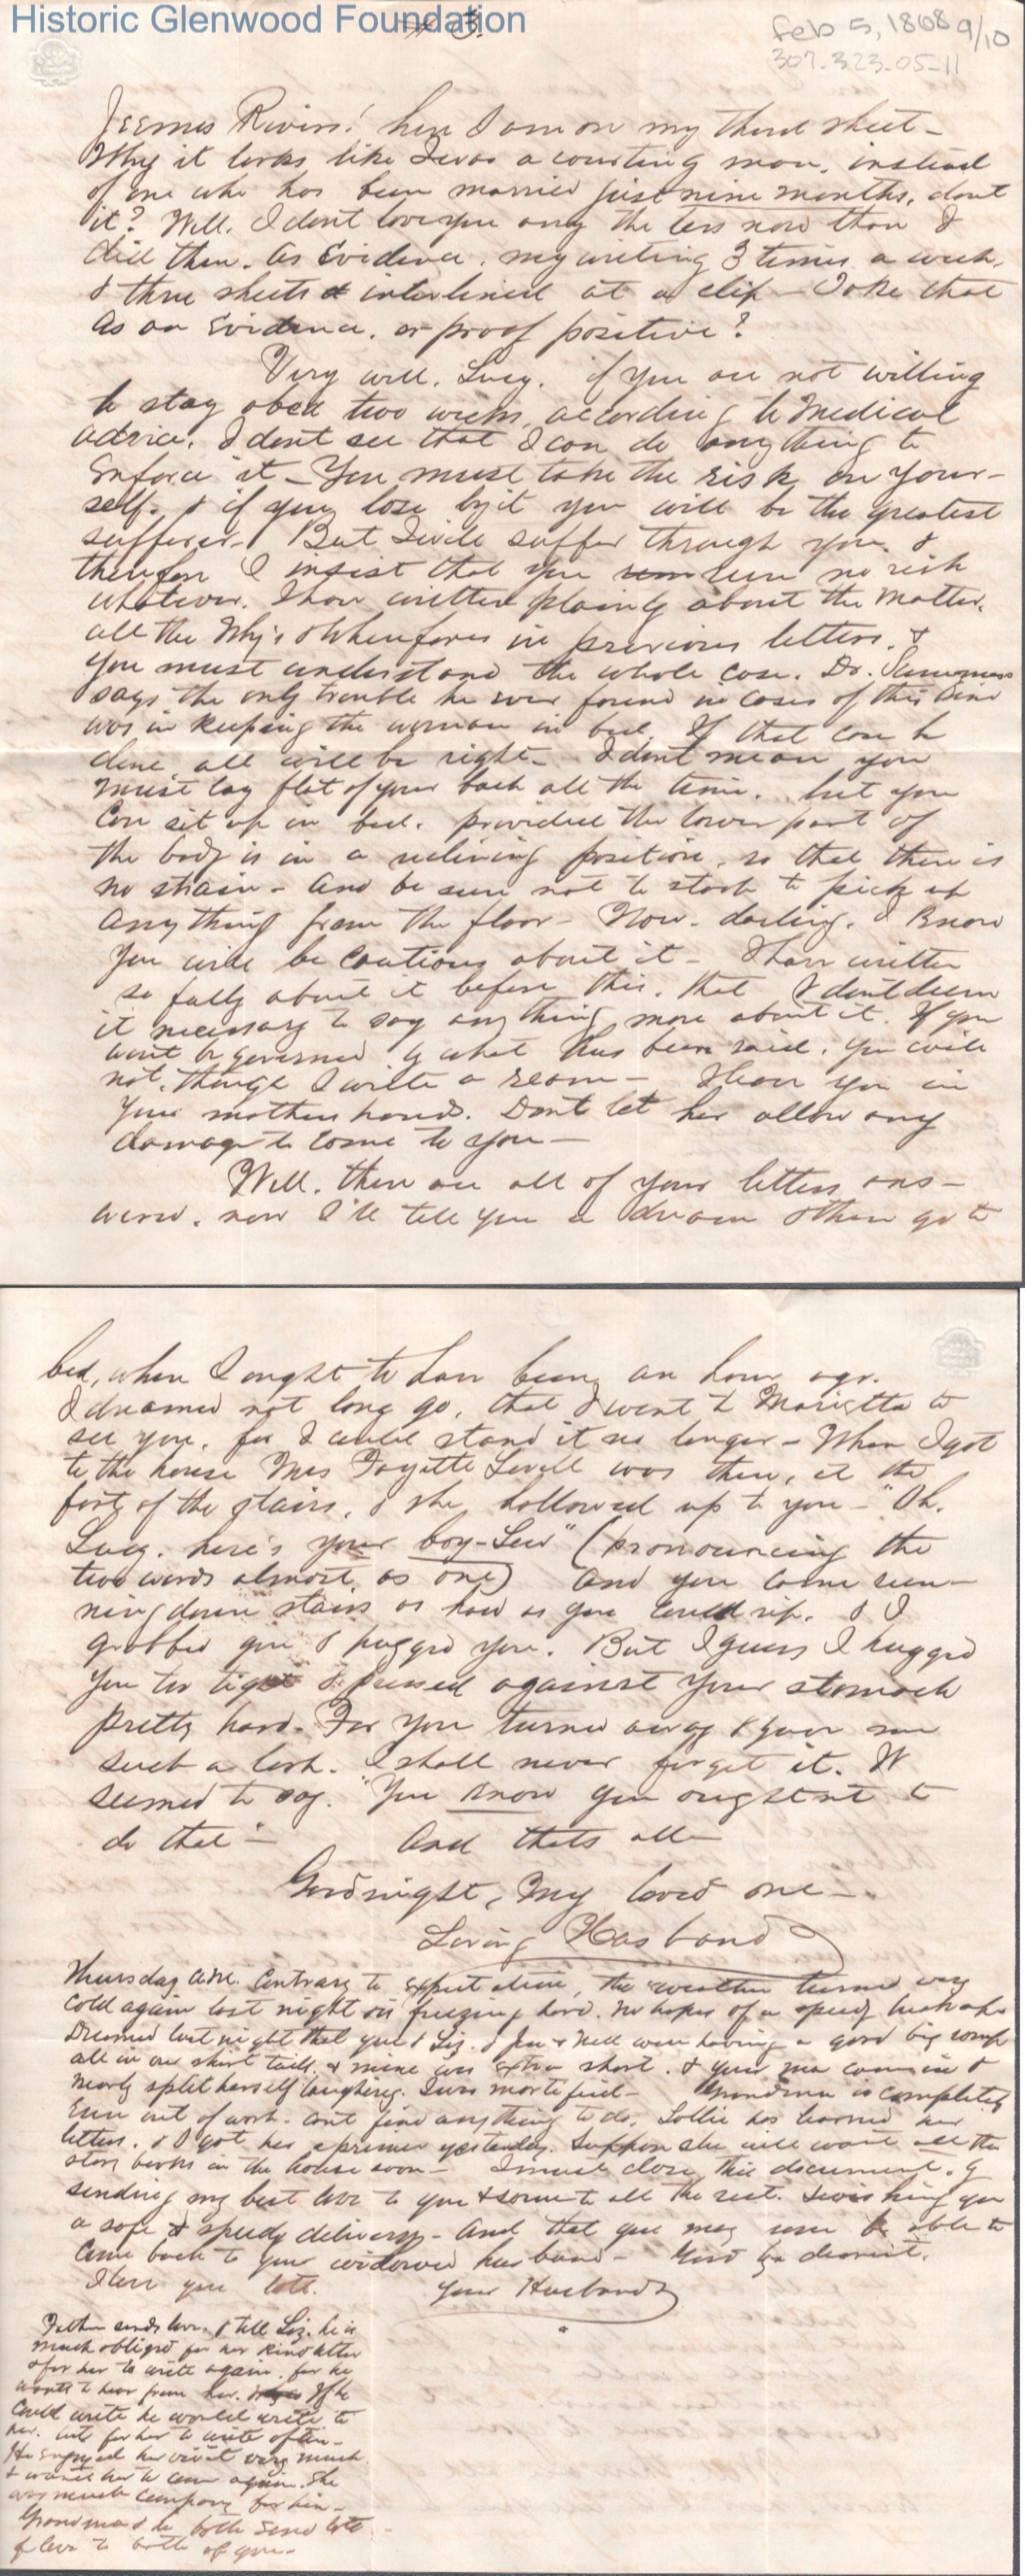 Historic Glenwood Foundation
3.
Feb 5, 1868 9/10
307.323-05-11
Jeemes Rivers! here I am on my third sheet -
Why it looks like I was a courting man, instead
of one who has been married just nine months, dont
it? Well, I dont love you any the less now than I
did then. As Evidence, my writing 3 times a week,
& three sheets & interlined at a clip - Take that
as an Evidence, or proof positive?
Very well, Lucy, if you are not willing
to stay abed two weeks, according to Medical
advice, I dont see that I can do anything to
Enforce it - You must take the risk on your-
self, & if you lose by it you will be the greatest
sufferer - But I will suffer through you, &
therefore I insist that you run no risk
whatever. I have written plainly about the matter,
all the Why's & Wherefores in previous letters, &
you must understand the whole case. Dr.
says the only trouble he ever found in cases of this kind
was in keeping the woman in bed. If that can be
done, all will be right - I dont mean you
must lay flat of your back all the time, but you
can sit up in bed, provided the lower part of
the body is in a reclining position, so that there is
no strain - And be sure not to stoop to pick up
anything from the floor - Now, darling, I know
you will be cautious about it - I have written
so fully about it before this, that I dont deem
it necessary to say anything more about it. If you
wont be governed by what has been said, you will
not, though I write a ream - I leave you in
your mothers hands. Dont let her allow any
damage to come to you -
Well, there are all of your letters ans-
wered, now I'll tell you a dream & then go to
bed, where I ought to have been an hour ago.
I dreamed not long go, that I went to Marietta to
see you, for I could stand it no longer - When I got
to the house Mrs Fayette Sewell was there, at the
foot of the stairs, & she hollowed up to you - "Oh,
Lucy, here's your boy-Lew" (pronouncing the
two words almost as one) and you come run-
ning down stairs as hard as you could rip, & I
grabbed you & hugged you. But I guess I hugged
you too tight & pressed against your stomach
pretty hard - For you turned away & gave me
such a look. I shall never forget it. It
seemed to say, "You know you oughtent to
do that" - And thats all -
Goodnight, My loved one -
Loving Husband
Thursday a.m. Contrary to expectation, the weather turned very
cold again last night & is freezing hard. No hopes of a speedy break up.
Dreamed last night that you & Liz & Jen & Nell were having a good big romp
all in our shirt tails, & mine was extra short, & your ma come in &
nearly split herself laughing. I was mortified - Grandma is completely
run out of work - cant find anything to do. Lollie has learned her
letters, & I got her a primer yesterday. Suppose she will want all the
story books in the house soon - I must close this document, by
sending my best love to you & some to all the rest. Wishing you
a safe & speedy delivery - And that you may soon be able to
come back to your widowed husband - Good bye dearest.
I love you lots. Your Husband
Father sends love, & tell Liz he is
much obliged for her kind letter
& for her to write again, for he
wants to hear from her. If he
could write he would write to
her, but for her to write often -
He enjoyed her visit very much
& wants her to come again. She
was much company for him -
Grandma & he both send lots
of love to both of you -